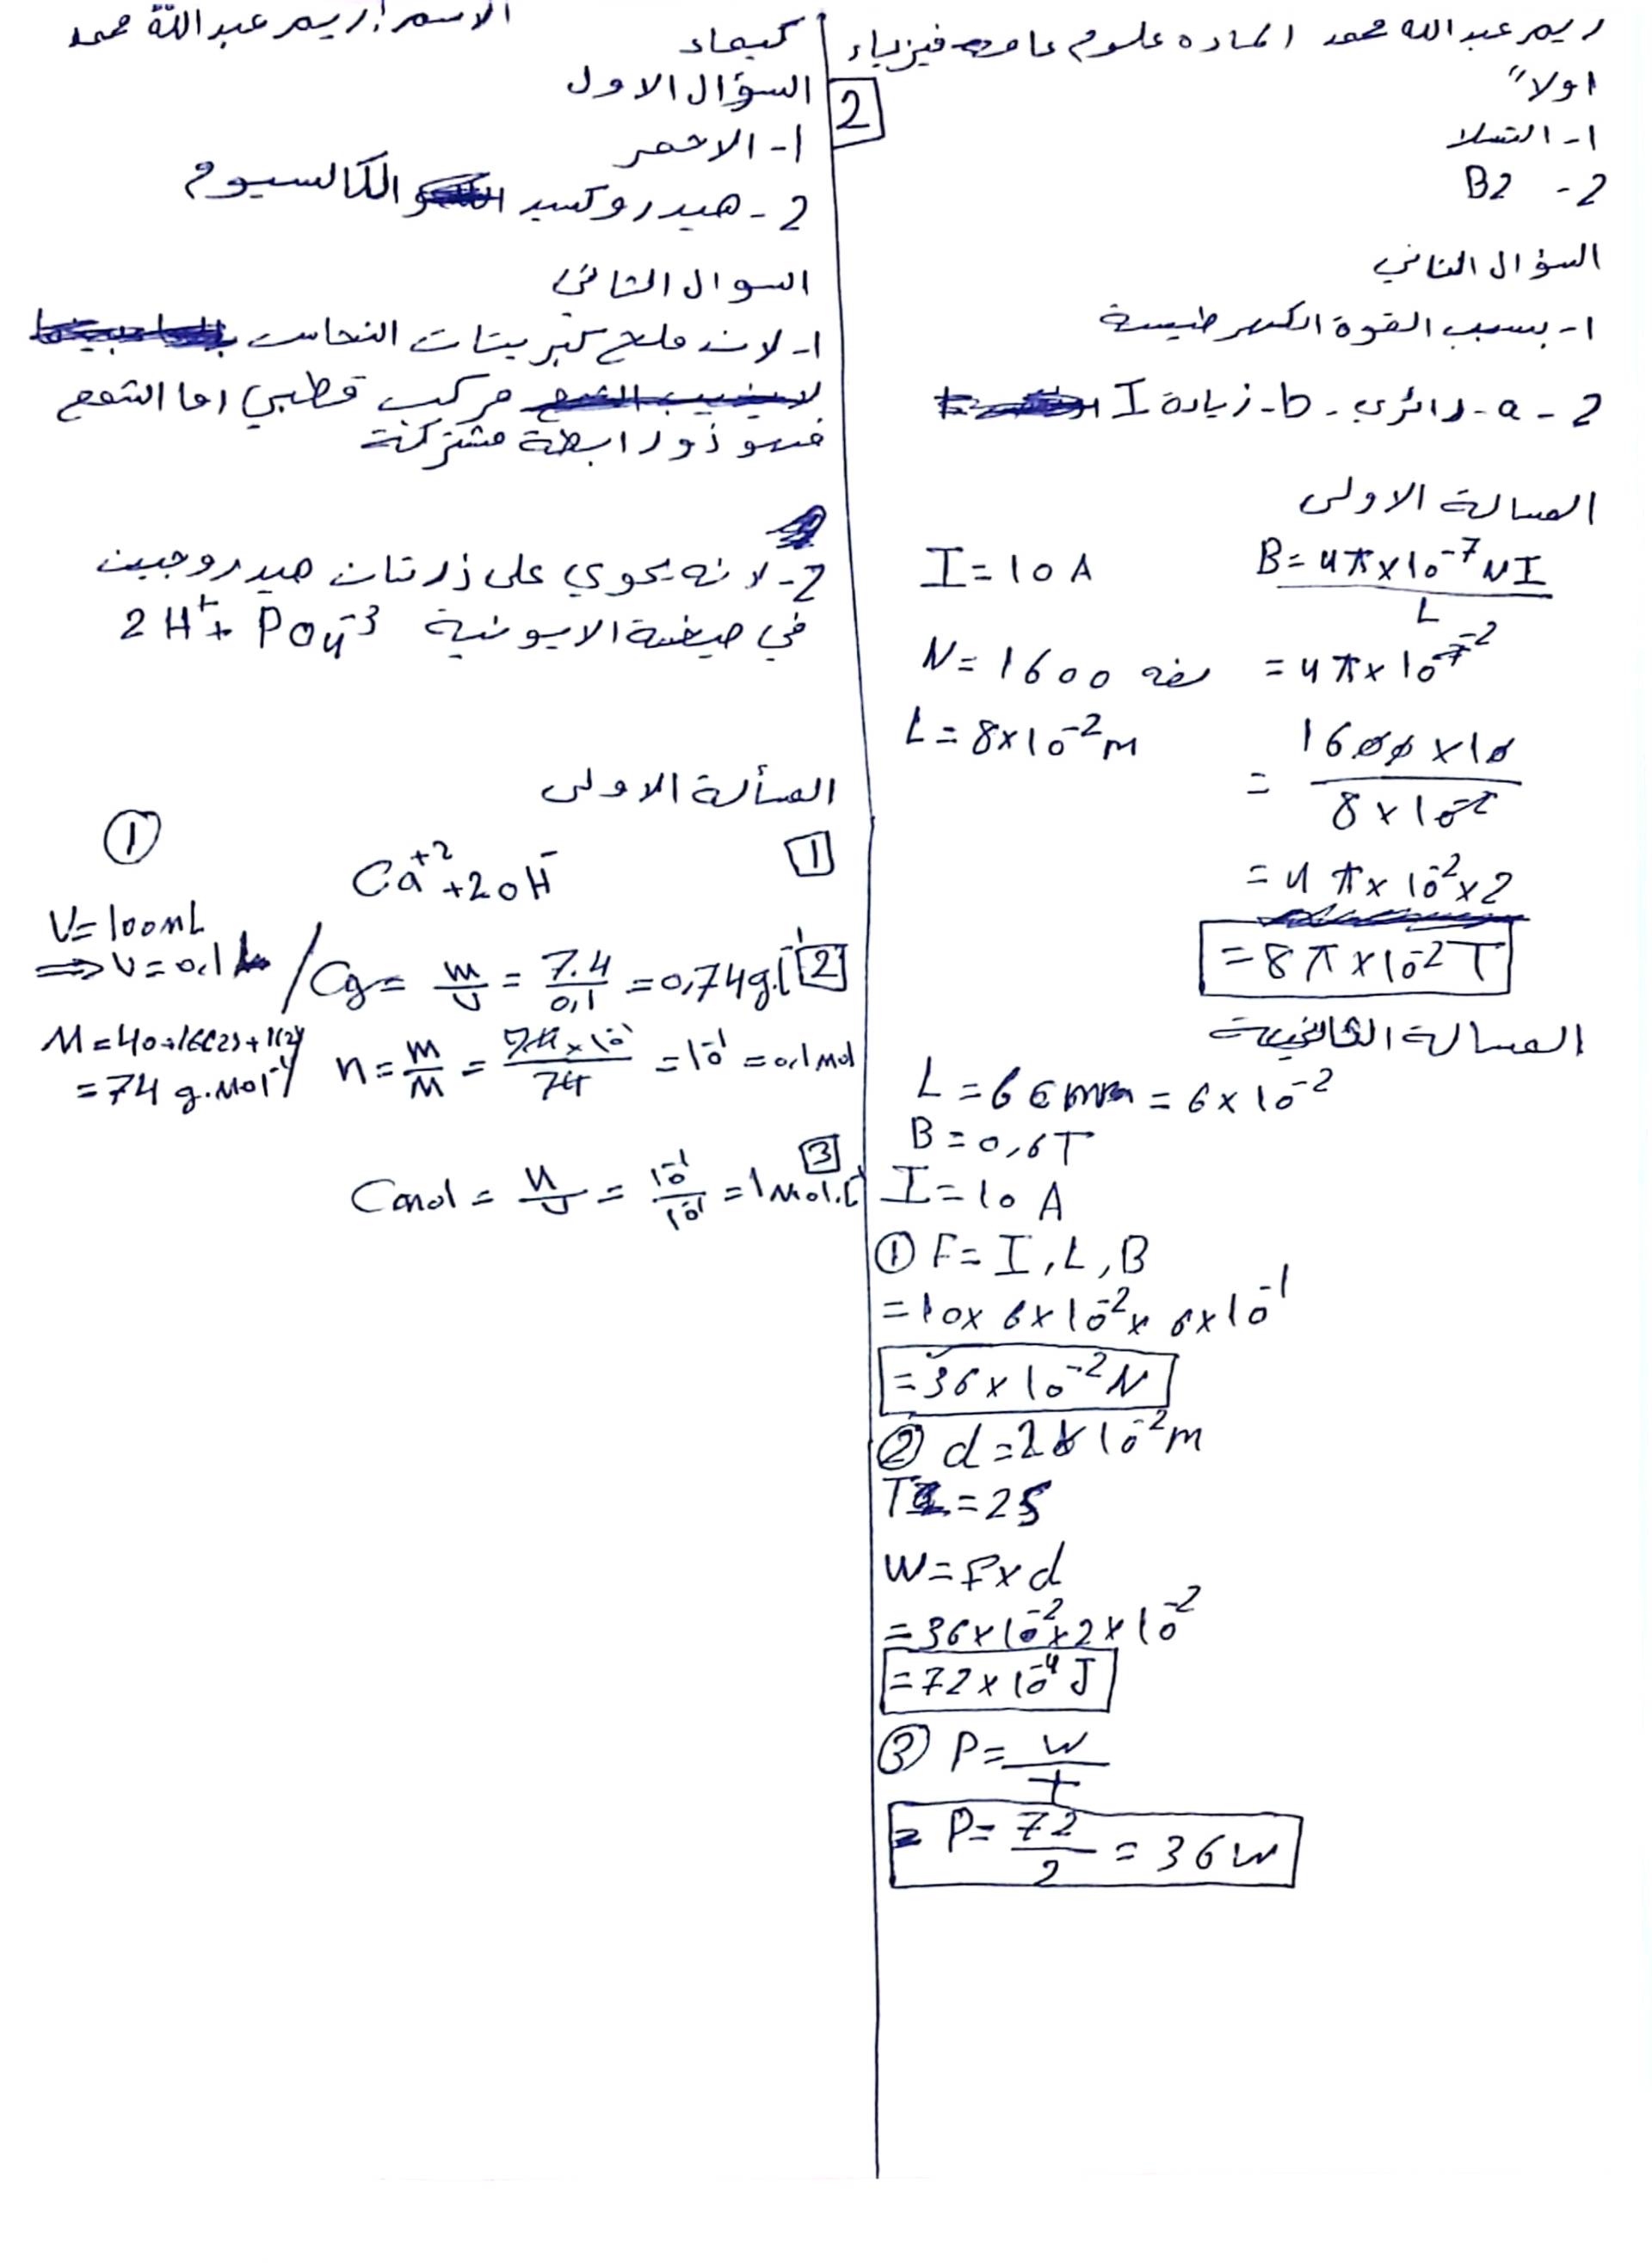 ريم عبد الله محمد المادة علوم عامة فيزياء
اولا"
1- التسلا
2- B2
السؤال الثاني
1- بسبب القوة الكهرطيسية
2- a- دائري - b- زيادة I
المسالة الاولى
B = 4π×10⁻⁷ NI / L
I = 10 A
= 4π × 10⁻²
N = 1600 لفه
L = 8×10⁻² m
= 1600 × 10 / 8 × 10⁻²
= 4π × 10⁻² × 2
= 8π × 10⁻² T
المسالة الثانية
L = 6 cm = 6 × 10⁻²
B = 0,6 T
I = 10 A
① F = I, L, B
= 10 × 6 × 10⁻² × 6 × 10⁻¹
= 36 × 10⁻² N
② d = 2 × 10⁻² m
= 2s
W = F × d
= 36 × 10⁻² × 2 × 10⁻²
= 72 × 10⁻⁴ J
③ P = W / t
= P = 72 / 2 = 36 w
2
كيمياء الاسم: ريم عبد الله محمد
السؤال الاول
1- الاحمر
2- هيدروكسيد الكالسيوم
السوال الثاني
1- لان ملح كبريتات النحاس
مركب قطبي اما الشمع
فهو ذو رابطة مشتركة
2- لانه يحوي على ذرتان هيدروجين
في صيغة الايونية 2H⁺ + PO₄⁻³
المسألة الاولى
①
1 Ca⁺² + 2OH⁻
V = 100 mL
⇒ V = 0,1
2 Cg = m / V = 7.4 / 0,1 = 0,74 g.l⁻¹
M = 40 + 16(2) + 1(2)
= 74 g.mol⁻¹
n = m / M = 74 × 10⁻¹ / 74 = 10⁻¹ = 0,1 mol
3 Cmol = n / V = 10⁻¹ / 10⁻¹ = 1 mol.l⁻¹